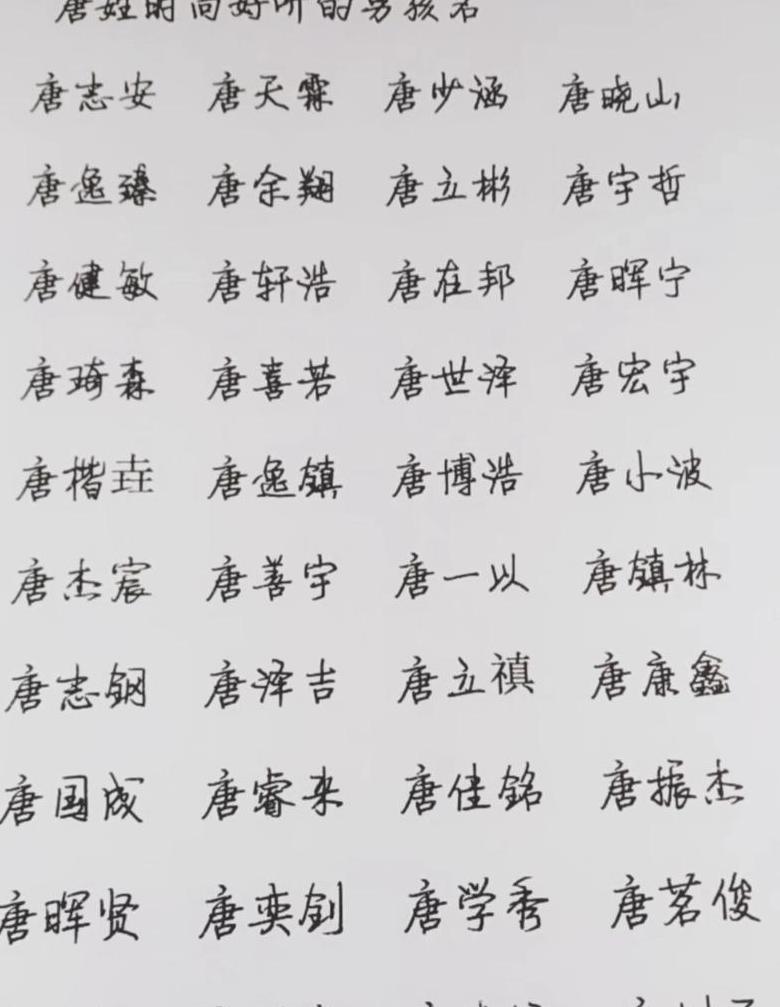 唐姓时尚好听的男孩名
唐志安 唐天霖 唐少涵 唐晓山
唐逸臻 唐余翔 唐立彬 唐宇哲
唐健敏 唐轩浩 唐在邦 唐晖宁
唐琦森 唐喜若 唐世泽 唐宏宇
唐楷垚 唐逸镇 唐博浩 唐小波
唐杰宸 唐善宇 唐一以 唐镇林
唐志钢 唐泽吉 唐立禛 唐康鑫
唐国成 唐睿来 唐佳铭 唐振杰
唐晖贤 唐奕钊 唐学秀 唐茗俊